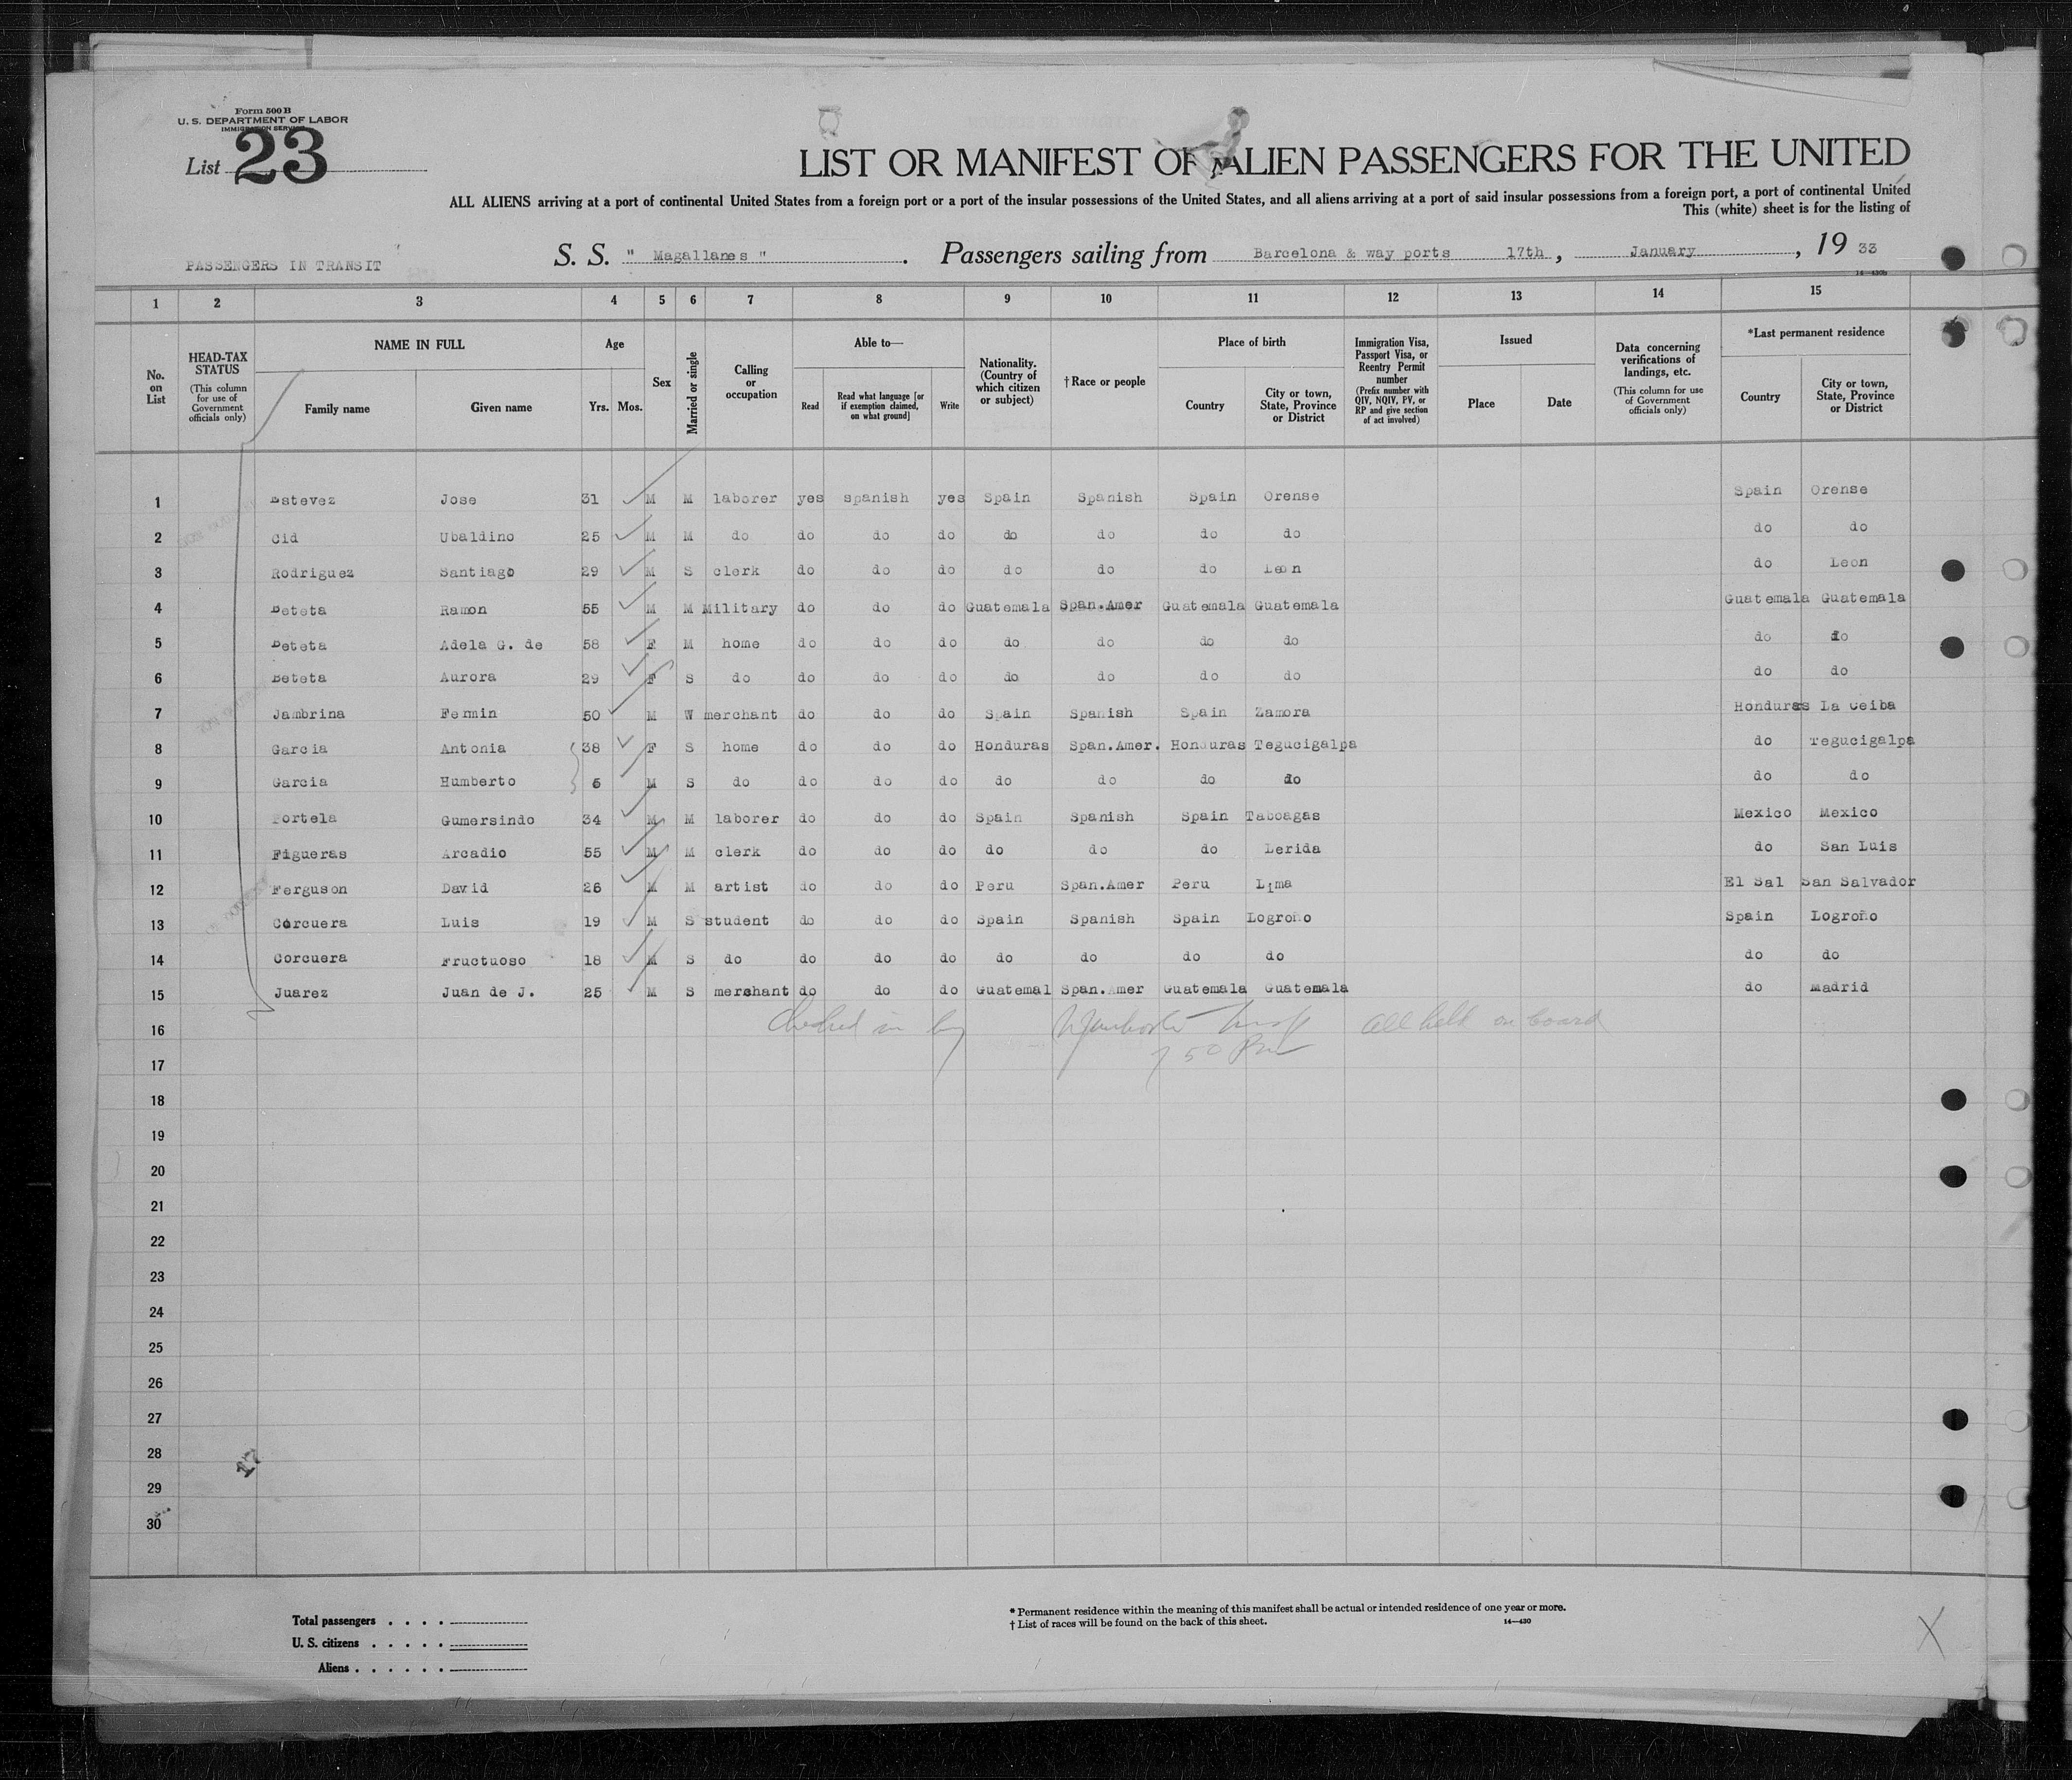 Form 500 B
U. S. DEPARTMENT OF LABOR
IMMIGRATION SERVICE
List 23
LIST OR MANIFEST OF ALIEN PASSENGERS FOR THE UNITED
ALL ALIENS arriving at a port of continental United States from a foreign port or a port of the insular possessions of the United States, and all aliens arriving at a port of said insular possessions from a foreign port, a port of continental United
This (white) sheet is for the listing of
PASSENGERS IN TRANSIT
S. S. " Magallanes " . Passengers sailing from Barcelona & way ports 17th , January , 19 33
1 2 3 4 5 6 7 8 9 10 11 12 13 14 15
No. on List
HEAD-TAX STATUS (This column for use of Government officials only)
NAME IN FULL Family name Given name
Age Yrs. Mos.
Sex
Married or single
Calling or occupation
Able to— Read Read what language [or if exemption claimed, on what ground] Write
Nationality. (Country of which citizen or subject)
† Race or people
Place of birth Country City or town, State, Province or District
Immigration Visa, Passport Visa, or Reentry Permit number (Prefix number with QIV, NQIV, PV, or RP and give section of act involved)
Issued Place Date
Data concerning verifications of landings, etc. (This column for use of Government officials only)
*Last permanent residence Country City or town, State, Province or District
1 Estevez Jose 31 M M laborer yes spanish yes Spain Spanish Spain Orense Spain Orense
2 Cid Ubaldino 25 M M do do do do do do do do do do
3 Rodriguez Santiago 29 M S clerk do do do do do do Leon do Leon
4 Beteta Ramon 55 M M Military do do do Guatemala Span.Amer Guatemala Guatemala Guatemala Guatemala
5 Beteta Adela G. de 58 F M home do do do do do do do do do
6 Beteta Aurora 29 F S do do do do do do do do do do
7 Jambrina Fermin 50 M W merchant do do do Spain Spanish Spain Zamora Honduras La Ceiba
8 Garcia Antonia 38 F S home do do do Honduras Span.Amer. Honduras Tegucigalpa do Tegucigalpa
9 Garcia Humberto 6 M S do do do do do do do do do do
10 Portela Gumersindo 34 M M laborer do do do Spain Spanish Spain Taboagas Mexico Mexico
11 Figueras Arcadio 55 M M clerk do do do do do do Lerida do San Luis
12 Ferguson David 26 M M artist do do do Peru Span.Amer Peru Lima El Sal San Salvador
13 Corcuera Luis 19 M S student do do do Spain Spanish Spain Logroño Spain Logroño
14 Corcuera Fructuoso 18 M S do do do do do do do do do do
15 Juarez Juan de J. 25 M S merchant do do do Guatemal Span.Amer Guatemala Guatemala do Madrid
16 Checked in by All held on board
17 7 50 PM
18
19
20
21
22
23
24
25
26
27
28
29
30
Total passengers . . . .
U. S. citizens . . . . .
Aliens . . . . . .
* Permanent residence within the meaning of this manifest shall be actual or intended residence of one year or more.
† List of races will be found on the back of this sheet. 14—430